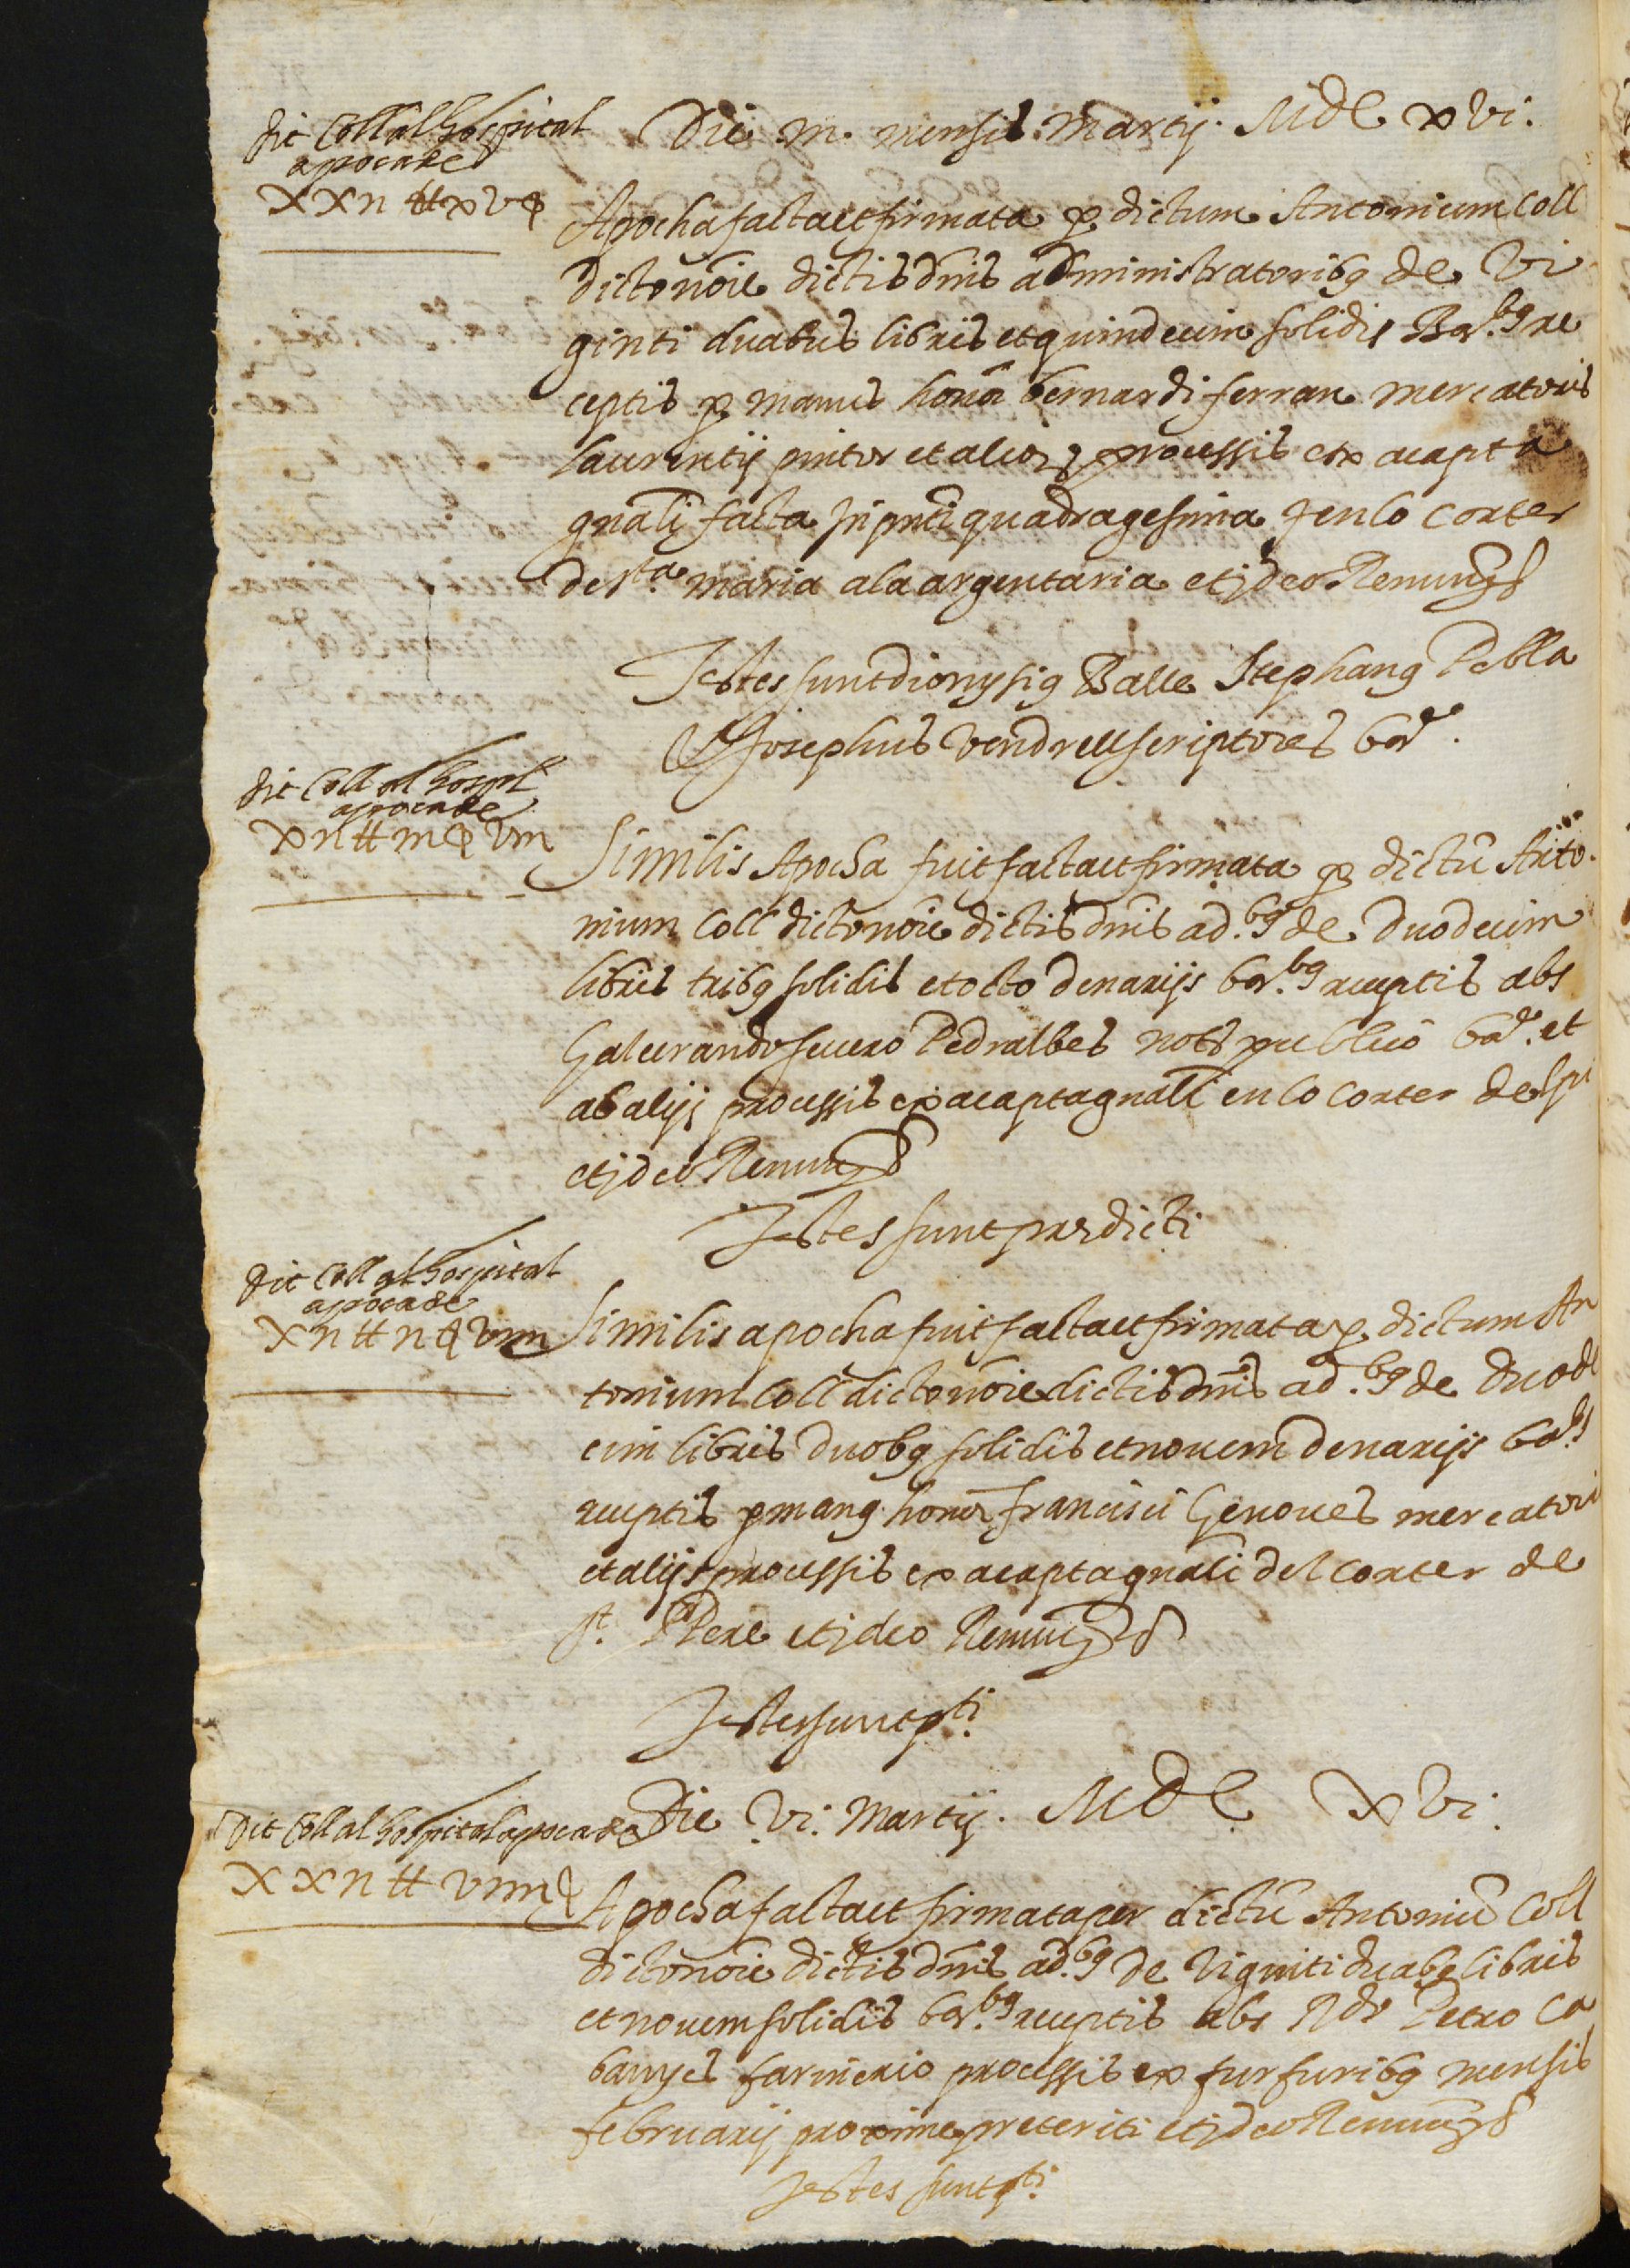 dit Coll al hospital
apoca de
XXII ₶ XV ẜ
Die III. mensis Martij. MDLXVI.
Apocha facta et firmata p dictum Antonium Coll
dicto noīe dictis dn̄is administratoribꝰ de Vi
ginti duabus libris et quindecim solidis Bar.bꝰ re
ceptis p manus honor bernardi ferran mercatoris
laurentij pintor et alioꝝ processis ex acapta
gnāli facta in pn̄ti quadragesima en lo corter
de Sta. maria a la argentaria et ideo Renun &
Testes sunt dionysiꝰ Balle Stephanꝰ Pebla
& Josephus Vendrell scriptores bar.
dit Coll al hospl
apoca de
XII ₶ III ẜ VIII
Similis Apocha fuit facta et firmata p dictū Anto
nium Coll dicto noīe dictis dn̄is ad.bꝰ de duodecim
libris tribꝰ solidis et octo denarijs bar.bꝰ receptis abs
Galcerando seuero Pedralbes noto publico bar. et
ab alijs processis ex acapta gnāli en lo corter del pi
et ideo Renun &
Testes sunt prædicti
dit Coll al hospital
apoca de
XII ₶ II ẜ VIIII
Similis apocha fuit facta et firmata p dictum An
tonium Coll dicto noīe dictis dn̄is ad.bꝰ de duode
cim libris duobꝰ solidis et nouem denarijs bar.bꝰ
receptis p manꝰ honor francisci Genoues mercatori
et alijs processis ex acapta gnāli del corter de
St. Pere et ideo Renun &
Testes sunt pti.
dit Coll al hospital apoca de
XXII ₶ VIIII ẜ
Die VI. Martij. MDLXVI.
Apocha facta et firmata per dictū Antoniū Coll
dicto noīe dictis dn̄is ad.bꝰ de viginti duabꝰ libris
et nouem solidis bar.bꝰ receptis abs Rdo Petro Ca
banyes farinerio processis ex furfuribꝰ mensis
februarij proxime preteriti et ideo Renun &
Testes sunt pti.